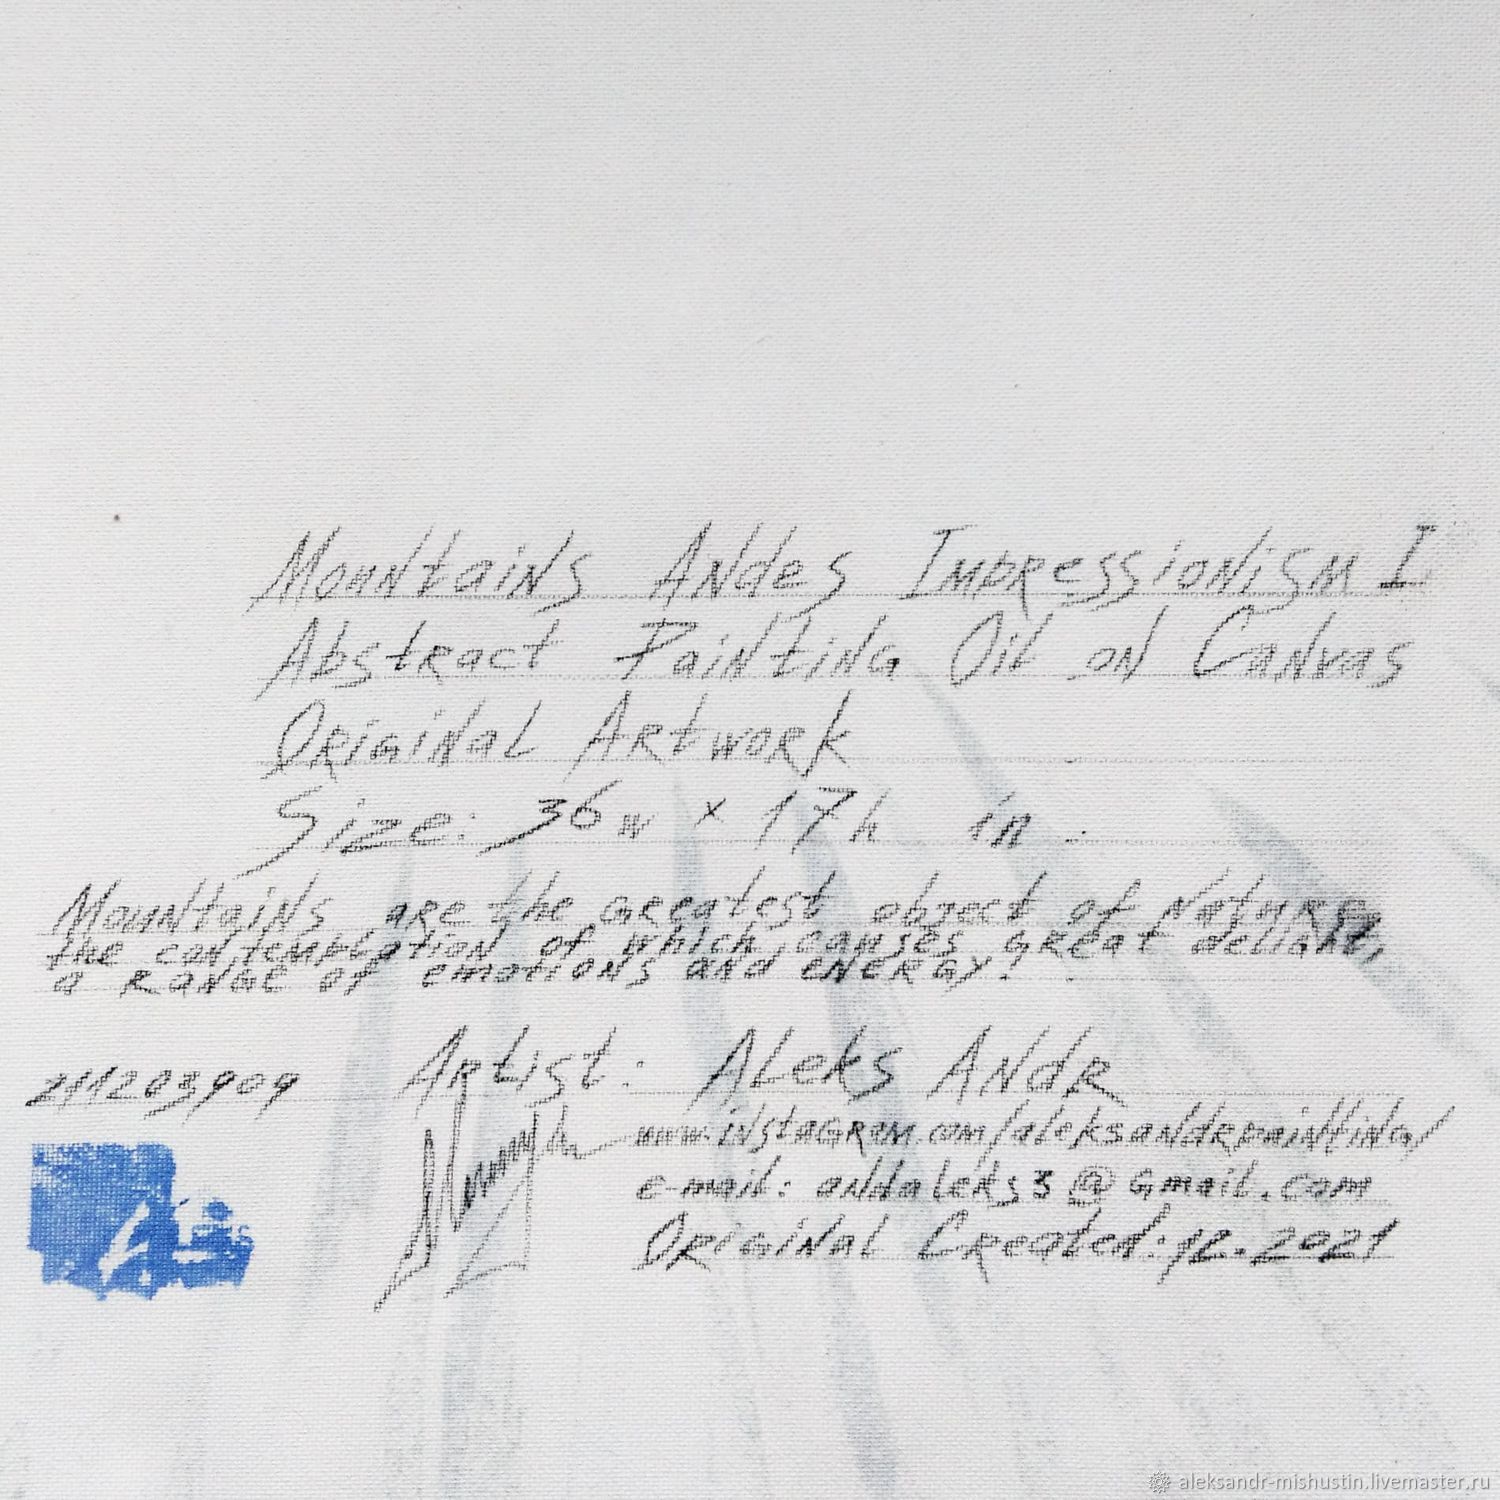 Mountains Andes Impressionism I
Abstract Painting Oil on Canvas
Original Artwork
Size: 36w x 17h in.
Mountains are the greatest object of Nature,
the contemplation of which causes great delight,
a range of emotions and energy.
Artist: Aleks Andr
www.instagram.com/aleksandrpainting/
e-mail: andaleks3@gmail.com
Original Created: 12.2021
aleksandr-mishustin.livemaster.ru